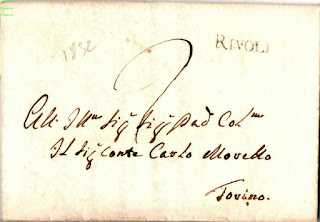 1832
RIVOLI
2
All. Illmo Sigr Sigr Pad Colmo
Il Sigr Conte Carlo Morello
Torino.